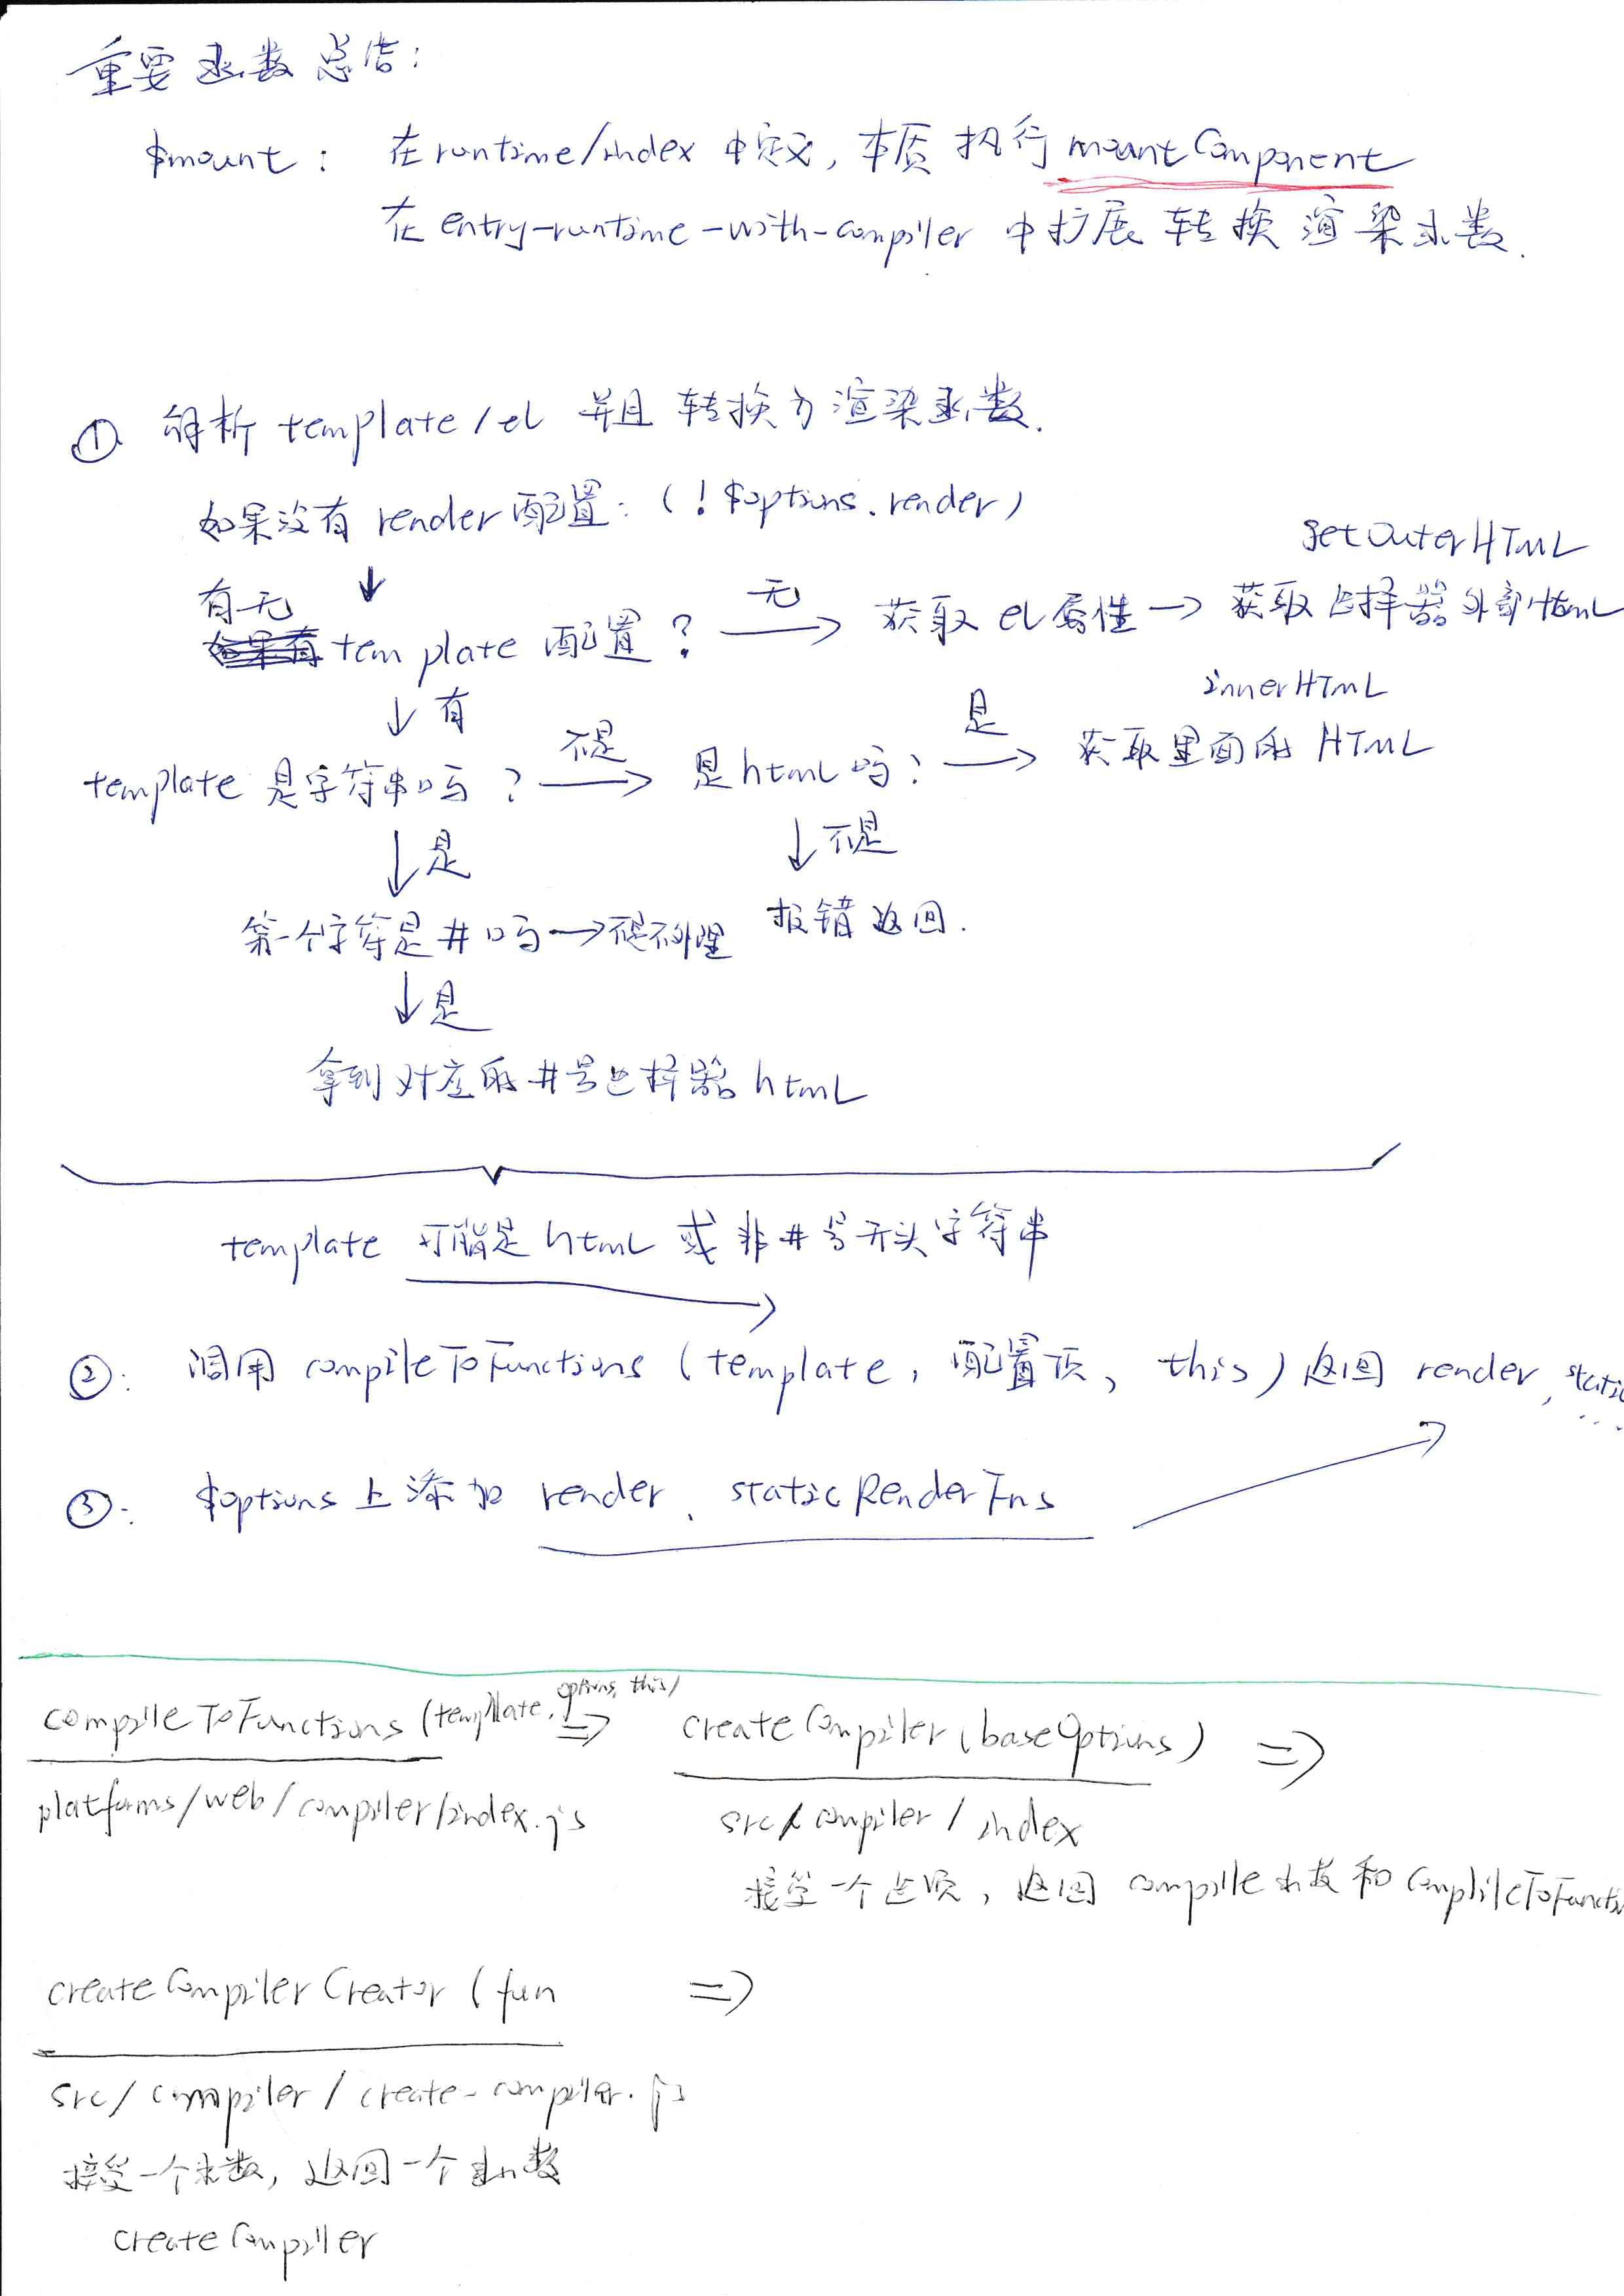 重要函数总结:
$mount: 在runtime/index中定义, 本质执行mountComponent
在entry-runtime-with-compiler中扩展转换渲染函数.
① 解析template/el 并且转换为渲染函数.
如果没有render配置: (!$options.render)
getOuterHTML
↓
有无
template配置? 无→ 获取el属性→获取选择器外部html
innerHTML
↓有
template是字符串吗? 不是→ 是html吗? 是→ 获取里面的HTML
↓是 ↓不是
第一个字符是#吗→不是不处理 报错返回.
↓是
拿到对应的#号选择器html
template 可能是html或非#号开头字符串
②: 调用compileToFunctions(template, 配置项, this)返回render, static
...
③: $options上添加render、staticRenderFns
compileToFunctions(template, options, this) => createCompiler(baseOptions) =>
platforms/web/compiler/index.js src/compiler/index
接受一个选项, 返回compile函数和compileToFuncti
createCompilerCreator(fun =>
src/compiler/create-compiler.js
接受一个函数, 返回一个函数
createCompiler